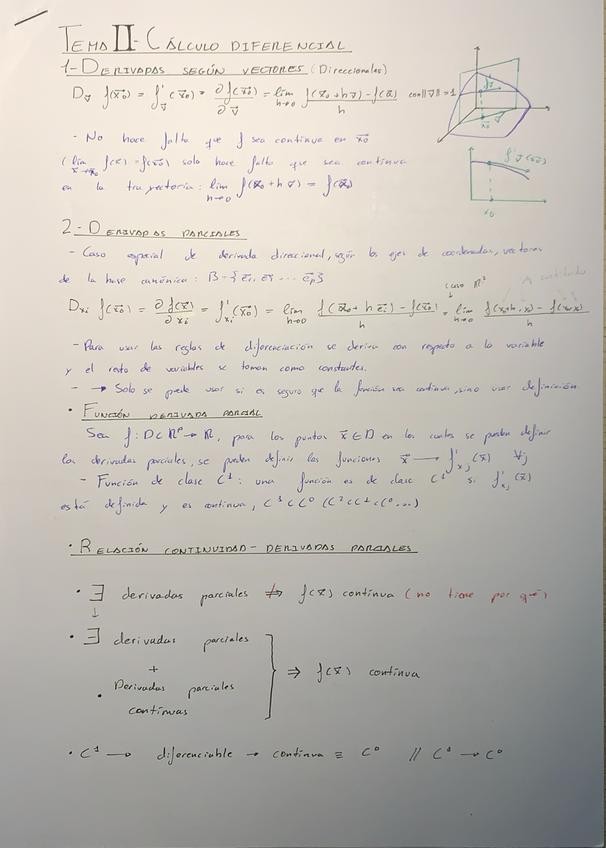 TEMA II - CÁLCULO DIFERENCIAL
1-DERIVADAS SEGÚN VECTORES (Direccionales)
D_v⃗ f(x⃗₀) = f'_v⃗(x⃗₀) = ∂f(x⃗₀)/∂v⃗ = lím h→0 (f(x⃗₀+hv⃗)-f(x⃗₀))/h con ||v⃗||=1
- No hace falta que f sea continua en x⃗₀
(lím x⃗→x⃗₀ f(x⃗) = f(x⃗₀)) solo hace falta que sea continua
en la trayectoria: lím h→0 f(x⃗₀+hv⃗) = f(x⃗₀)
f'v⃗(x⃗₀)
x₀
2-DERIVADAS PARCIALES
- Caso especial de derivada direccional, según los ejes de coordenadas, vectores
de la base canónica: B={e⃗₁, e⃗₂ ... e⃗p}
caso ℝ²
D_xi f(x⃗₀) = ∂f(x⃗)/∂xi = f'_xi(x⃗₀) = lím h→0 (f(x⃗₀+he⃗i)-f(x⃗₀))/h = lím h→0 (f(x₀+h, y₀)-f(x₀,y₀))/h
- Para usar las reglas de diferenciación se deriva con respecto a la variable
y el resto de variables se toman como constantes.
- → Solo se puede usar si es seguro que la función sea continua, sino usar definición.
• FUNCIÓN DERIVADA PARCIAL
Sea f: D⊂ℝᵖ→ℝ, para los puntos x⃗∈D en los cuales se pueden definir
las derivadas parciales, se pueden definir las funciones x⃗ → f'_xj(x⃗) ∀j
- Función de clase C¹: una función es de clase C¹ si f'_xj(x⃗)
está definida y es continua, C¹⊂C⁰ (C²⊂C¹⊂C⁰...)
• RELACIÓN CONTINUIDAD-DERIVADAS PARCIALES
• ∃ derivadas parciales ⇏ f(x⃗) continua (no tiene por qué)
↓
• ∃ derivadas parciales
+
⇒ f(x⃗) continua
• Derivadas parciales
continuas
• C¹ → diferenciable → continua ≡ C⁰ // C¹ → C⁰